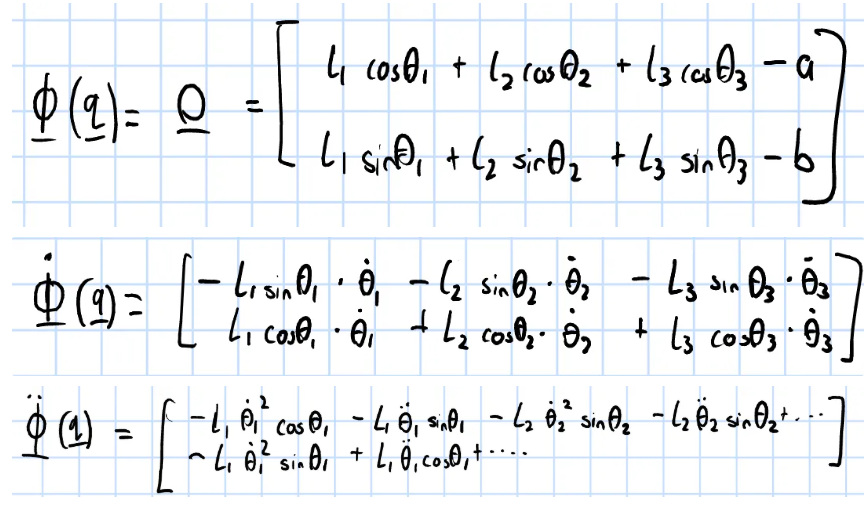 Φ(q) = 0 = [ L₁ cosθ₁ + L₂ cosθ₂ + L₃ cosθ₃ − a
L₁ sinθ₁ + L₂ sinθ₂ + L₃ sinθ₃ − b ]
Φ̇(q) = [ − L₁ sinθ₁ · θ̇₁ − L₂ sinθ₂ · θ̇₂ − L₃ sinθ₃ · θ̇₃
L₁ cosθ₁ · θ̇₁ + L₂ cosθ₂ · θ̇₂ + L₃ cosθ₃ · θ̇₃ ]
Φ̈(q) = [ − L₁ θ̇₁² cosθ₁ − L₁ θ̈₁ sinθ₁ − L₂ θ̇₂² sinθ₂ − L₂ θ̈₂ sinθ₂ + ...
− L₁ θ̇₁² sinθ₁ + L₁ θ̈₁ cosθ₁ + .... ]